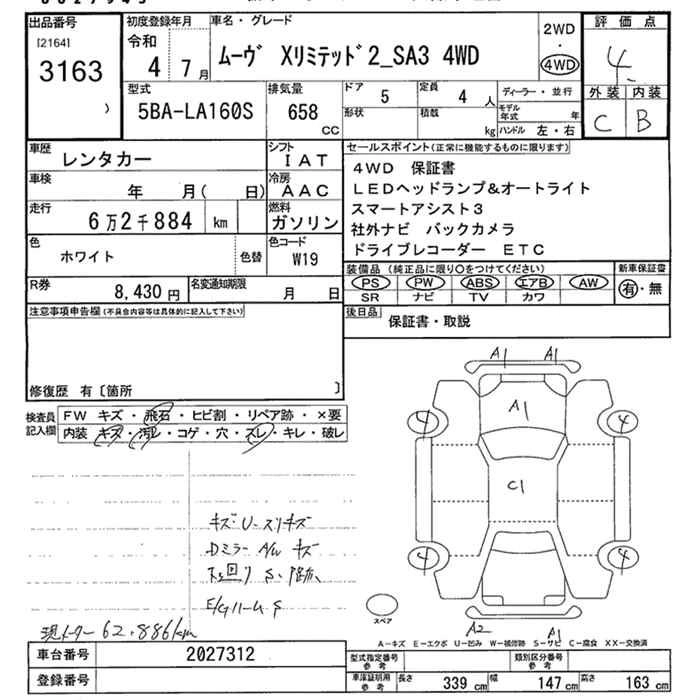 出品番号
[2164]
3163
初度登録年月
令和
4 7月
車名・グレード
ムーヴ Xリミテッド2_SA3 4WD
2WD
・
4WD
評価点
4
外装 内装
C B
型式
5BA-LA160S
排気量
658
CC
ドア
5
定員
4 人
形状
積載
kg
ディーラー・並行
モデル年式 年
ハンドル 左・右
車歴
レンタカー
シフト
IAT
車検
年 月( 日)
冷房
AAC
走行
6万2千884 km
燃料
ガソリン
色
ホワイト
色替
色コード
W19
R券
8,430円
名変通知期限
月 日
セールスポイント(正常に機能するものに限ります)
4WD 保証書
LEDヘッドランプ&オートライト
スマートアシスト3
社外ナビ バックカメラ
ドライブレコーダー ETC
装備品(純正品に限り○をつけてください)
新車保証書
PS PW ABS エアB AW
SR ナビ TV カワ
有・無
後日品
保証書・取説
注意事項申告欄(不具合内容等は具体的に記入して下さい)
修復歴 有〔箇所 〕
検査員
記入欄
FW キズ・飛石・ヒビ割・リペア跡・×要
内装 キズ・汚レ・コゲ・穴・スレ・キレ・破レ
A1 A1
A1
4 4
C1
4 4
A2 A1
スペア
キズ・U-スリキズ
Dミラー A/W キズ
下回り S・跡、
E/Gルーム S
現メーター 62,886km
A-キズ E-エクボ U-凹み W-補修跡 S-サビ C-腐食 XX-交換済
車台番号
2027312
登録番号
型式指定番号
参考
類別区分番号
参考
車庫証明用
参考
長さ 339 cm 幅 147 cm 高さ 163 cm